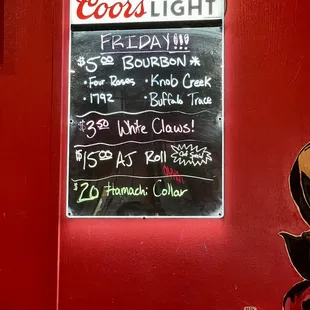 Coors LIGHT
FRIDAY!!!
$5.00 BOURBON *
· Four Roses · Knob Creek
· 1792 · Buffalo Trace
$3.50 White Claws!
$15.00 AJ Roll
$20 Hamachi Collar